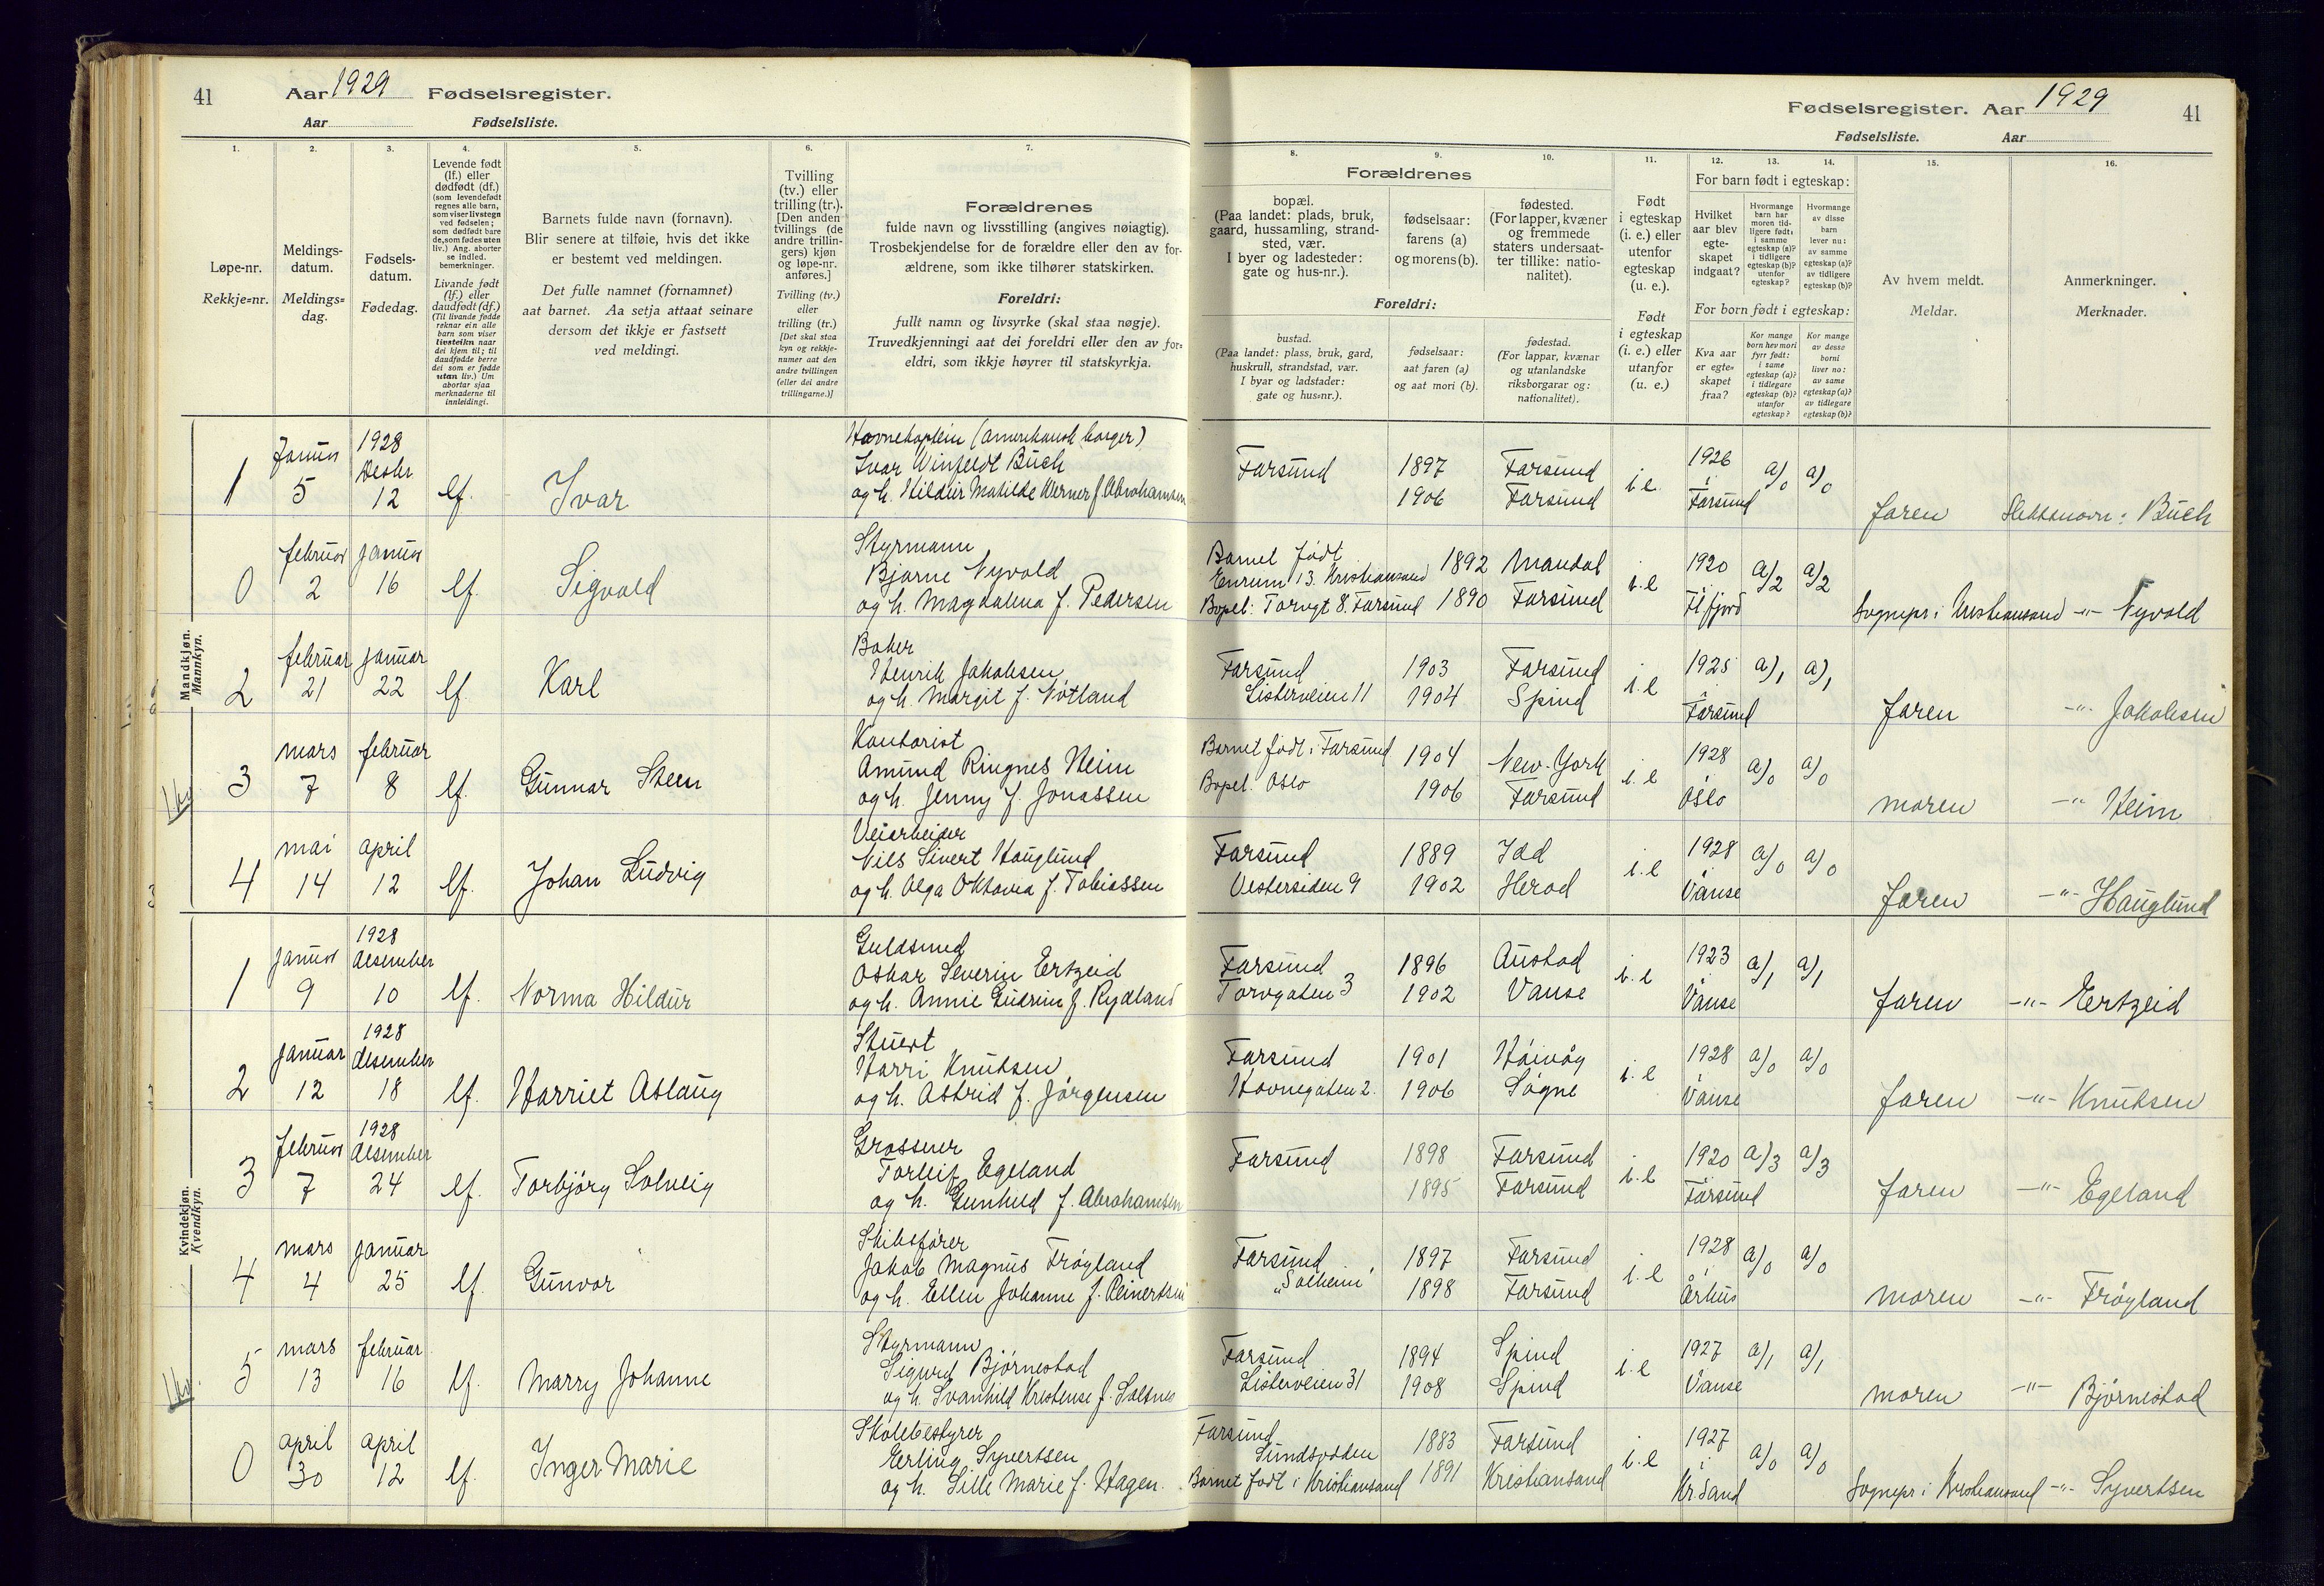 41 Aar 1929 Fødselsregister.
Aar Fødselsliste.
Fødselsregister. Aar 1929 41
Fødselsliste. Aar
1. 2. 3. 4. 5. 6. 7.
Løpe-nr.
Rekkje-nr.
Meldings-
datum.
Meldings-
dag.
Fødsels-
datum.
Fødedag.
Levende født
(lf.) eller
dødfødt (df.)
(som levendefødt
regnes alle barn,
som viser livstegn
ved fødselen;
som dødfødt bare
de, som fødes uten
liv.) Ang. aborter
se indled.
bemerkninger.
Livande født
(lf.) eller
daudfødt (df.)
(Til livande fødde
reknar ein alle
barn som viser
livsteikn naar
dei kjem til; til
daudfødde berre
dei som er fødde
utan liv.) Um
abortar sjaa
merknaderne til
innleidingi.
Barnets fulde navn (fornavn).
Blir senere at tilføie, hvis det ikke
er bestemt ved meldingen.
Det fulle namnet (fornamnet)
aat barnet. Aa setja attaat seinare
dersom det ikkje er fastsett
ved meldingi.
Tvilling
(tv.) eller
trilling (tr.).
[Den anden
tvillings (de
andre trillin-
gers) kjøn
og løpe-nr.
anføres.]
Tvilling (tv.)
eller
trilling (tr.)
[Det skal staa
kyn og rekkje-
numer aat den
andre tvillingen
(eller dei andre
trillingarne.)]
Forældrenes
fulde navn og livsstilling (angives nøiagtig).
Trosbekjendelse for de forældre eller den av for-
ældrene, som ikke tilhører statskirken.
Foreldri:
fullt namn og livsyrke (skal staa nøgje).
Truvedkjenningi aat dei foreldri eller den av for-
eldri, som ikkje høyrer til statskyrkja.
8. 9. 10. 11. 12. 13. 14. 15. 16.
Forældrenes
bopæl.
(Paa landet: plads, bruk,
gaard, hussamling, strand-
sted, vær.
I byer og ladesteder:
gate og hus-nr.).
fødselsaar:
farens (a)
og morens (b).
fødested.
(For lapper, kvæner
og fremmede
staters undersaat-
ter tillike: natio-
nalitet).
Foreldri:
bustad.
(Paa landet: plass, bruk, gard,
huskrull, strandstad, vær.
I byar og ladstader:
gate og hus-nr.).
fødselsaar:
aat faren (a)
og aat mori (b).
fødestad.
(For lappar, kvænar
og utanlandske
riksborgarar og:
nationalitet).
Født
i egteskap
(i. e.) eller
utenfor
egteskap
(u. e.).
Født
i egteskap
(i. e.) eller
utanfor
(u. e.)
For barn født i egteskap:
Hvilket
aar blev
egte-
skapet
indgaat?
Hvormange
barn har
moren tid-
ligere født:
i samme
egteskap (a)?
i tidligere
egteskap (b)?
utenfor
egteskap?
Hvormange
av disse
barn
lever nu:
av samme
egteskap (a)?
av tidligere
egteskap (b)?
For born født i egteskap:
Kva aar
er egte-
skapet
fraa?
Kor mange
born hev mori
fyrr født:
i same
egteskap (a)?
i tidlegare
egteskap (b)?
utanfor
egteskap?
Kor mange
av desse
borni
liver no:
av same
egteskap (a)?
av tidlegare
egteskap (b)?
Av hvem meldt.
Meldar.
Anmerkninger.
Merknader.
Mandkjøn.
Mannkyn.
1 Januar 5 1928 Desbr 12 lf. Ivar
Havnekaptein (amerikansk borger)
Ivar Winfeldt Buch
og h. Hildur Matilde Werner f. Abrahamsen
Farsund 1897 Farsund
1906 Farsund
i.e. 1926 i Farsund a/0 a/0 faren Slektsnavn: Buch
0 februar 2 januar 16 lf. Sigvald
Styrmann
Bjarne Nyvold
og h. Magdalena f. Pedersen
Barnet født
Enrum 13. Kristiansand 1892 Mandal
Bopel: Torvgt 8. Farsund 1890 Farsund
i.e 1920 a/2 a/2 Sognepr i Kristiansand -"- Nyvold
2 februar 21 januar 22 lf. Karl
Baker
Henrik Jakobsen
og h. Margit f. Nötland
Farsund 1903 Farsund
Listerveien 11 1904 Spind
i.e 1925 i Farsund a/1 a/1 faren -"- Jakobsen
3 mars 7 februar 8 lf. Gunnar Steen
Kontorist
Amund Ringnes Heim
og h. Jenny f. Jonassen
Barnet født i Farsund 1904 New-York
Bopel. Oslo 1906 Farsund
i.e 1928 i Oslo a/0 a/0 moren -"- Heim
4 mai 14 april 12 lf. Johan Ludvig
Veiarbeider
Nils Sivert Hauglund
og h. Olga Oktavia f. Tobiassen
Farsund 1889 Idd
Vestersiden 9 1902 Herad
i.e 1928 i Vanse a/0 a/0 faren -"- Hauglund
Kvindekjøn.
Kvendkyn.
1 januar 9 1928 desember 10 lf. Norma Hildur
Guldsmed
Oskar Severin Ertzeid
og h. Annie Gudrun f. Rydland
Farsund 1896 Austad
Torvgaten 3 1902 Vanse
i.e 1923 i Vanse a/1 a/1 faren -"- Ertzeid
2 januar 12 1928 desember 18 lf. Harriet Aslaug
Stuert
Harri Knutsen
og h. Astrid f. Jørgensen
Farsund 1901 Høivåg
Havnegaten 2. 1906 Søgne
i.e 1928 i Vanse a/0 a/0 faren -"- Knutsen
3 februar 7 1928 desember 24 lf. Torbjørg Solveig
Grosserer
Torleif Egeland
og h. Gunhild f. Abrahamsen
Farsund 1898 Farsund
1895 Farsund
i.e 1920 i Farsund a/3 a/3 faren -"- Egeland
4 mars 4 januar 25 lf. Gunvor
Skibsfører
Jakob Magnus Frøyland
og h. Ellen Johanne f. Reinertsen
Farsund 1897 Farsund
"Solheim" 1898 Farsund
i.e 1928 i Århus a/0 a/0 moren -"- Frøyland
5 mars 13 februar 16 lf. Marry Johanne
Styrmann
Sigurd Bjørnestad
og h. Svanhild Kristense f. Salsnes
Farsund 1894 Spind
Listerveien 31 1908 Spind
i.e 1927 i Vanse a/1 a/1 moren -"- Bjørnestad
0 april 30 april 12 lf. Inger Marie
Skolebestyrer
Erling Syvertsen
og h. Lille Marie f. Hagen.
Farsund
Sundsodden 1883 Farsund
Barnet født i Kristiansand 1891 Kristiansand
i.e 1927 i Kr.sand a/0 a/0 Sognepr i Kristiansand -"- Syvertsen